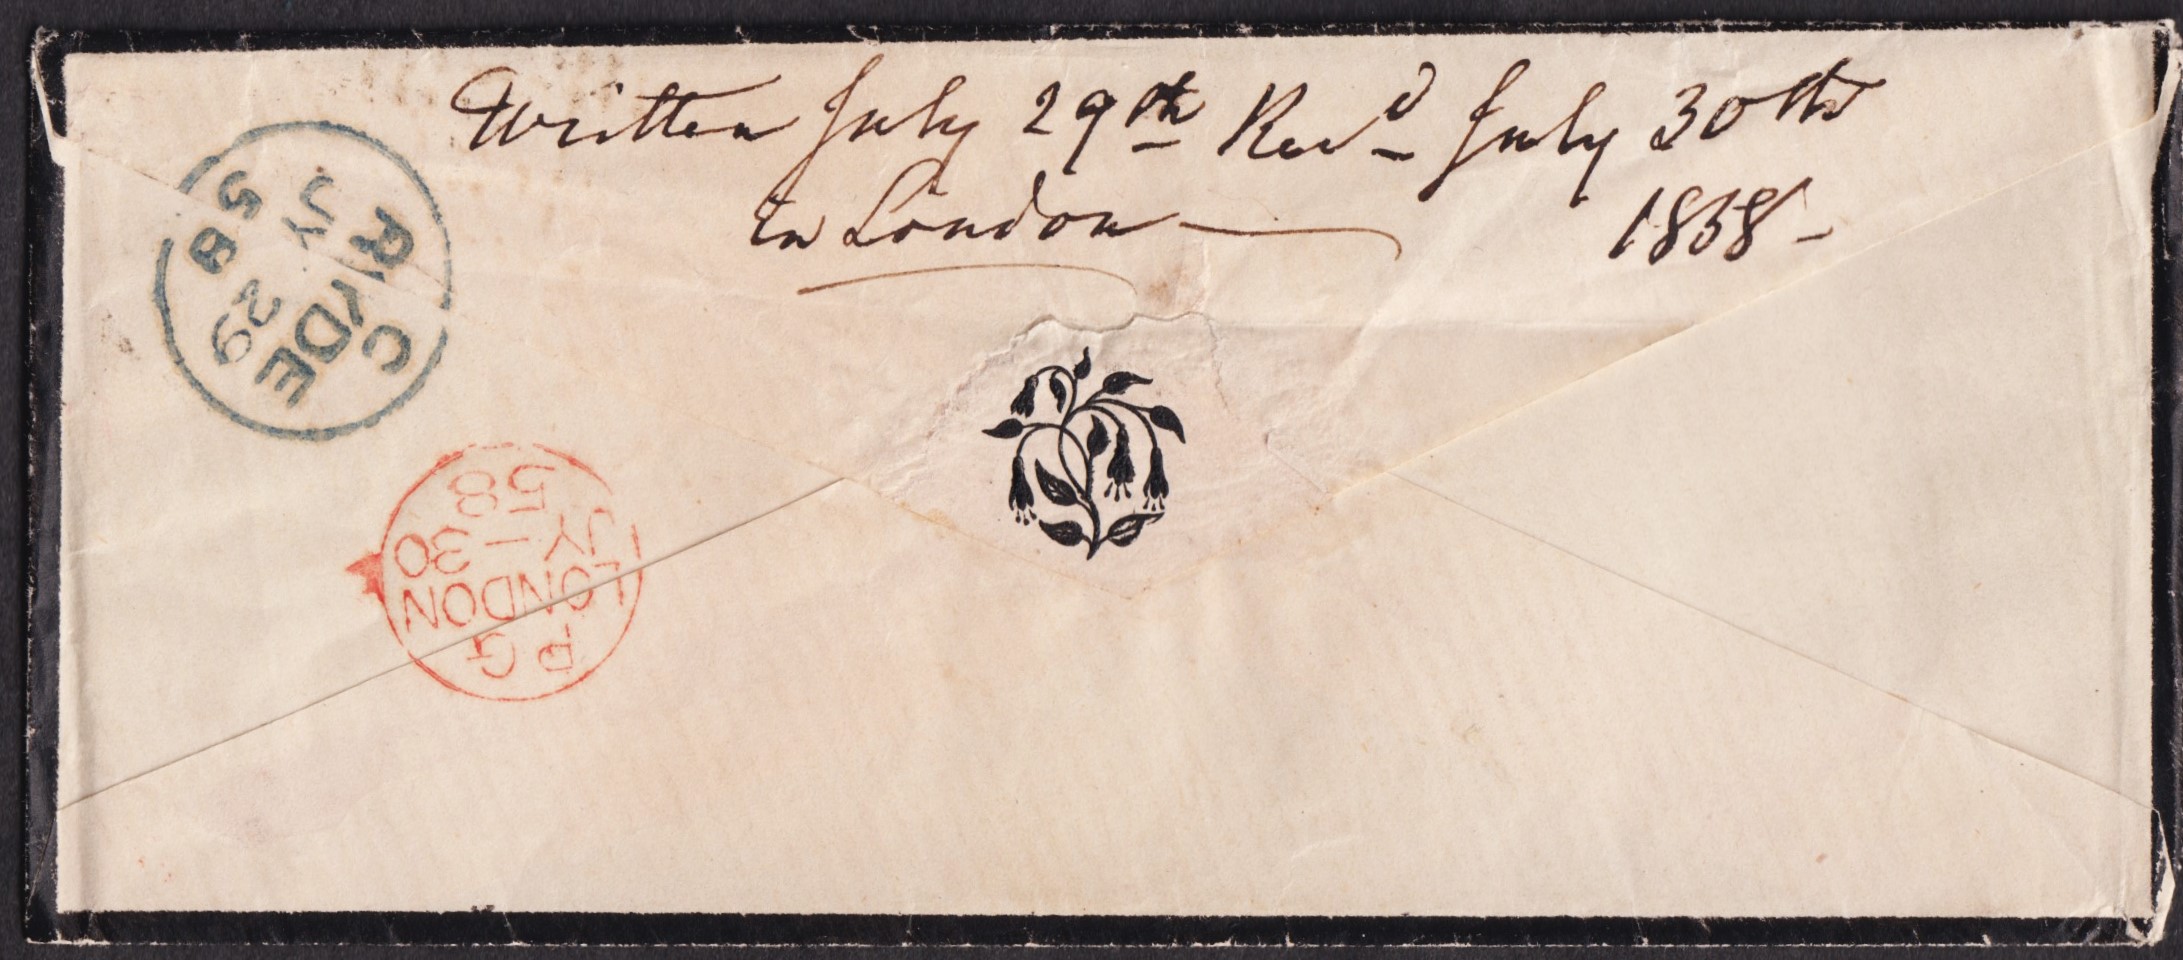 Written July 29th Recd July 30th
In London
1858
RYDE
C
JY 29
58
PG
LONDON
JY-30
58